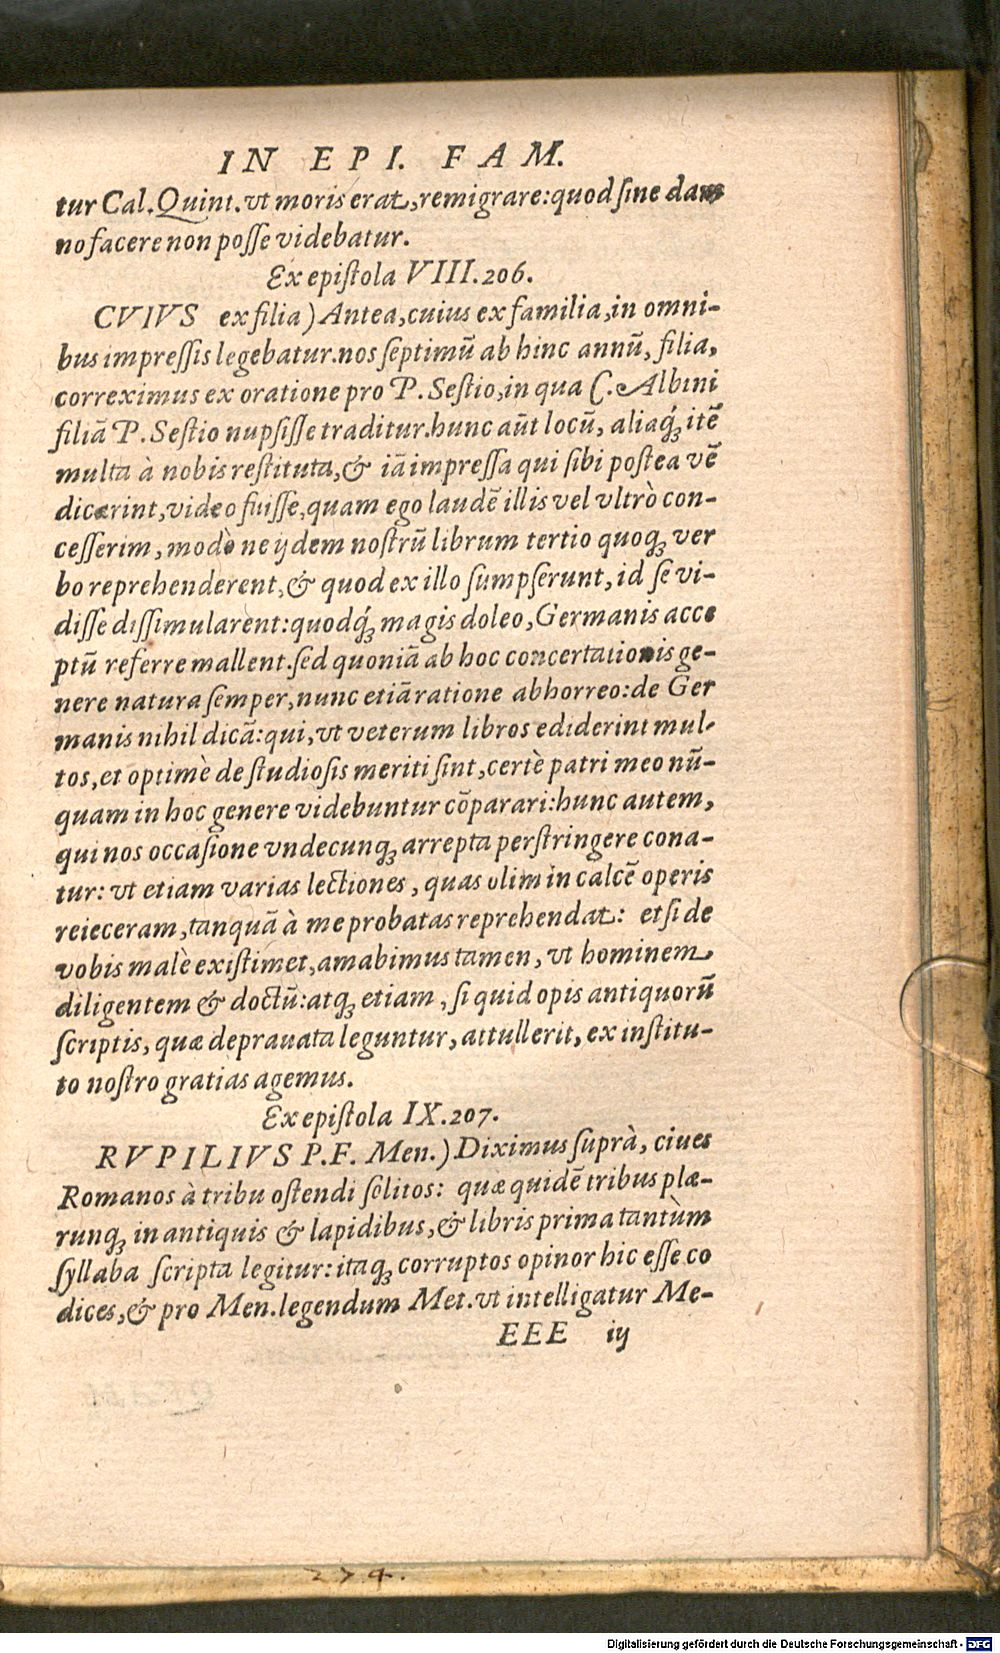 IN EPI. FAM.
tur Cal. Quint. vt moris erat, remigrare: quod sine dam
no facere non posse videbatur.
Ex epistola VIII. 206.
CVIVS ex filia) Antea, cuius ex familia, in omni-
bus impressis legebatur. nos septimũ ab hinc annũ, filia,
correximus ex oratione pro P. Sestio, in qua C. Albini
filiã P. Sestio nupsisse traditur. hunc aũt locũ, aliaq́; itẽ
multa à nobis restituta, & iã impressa qui sibi postea vẽ
dicarint, video fuisse, quam ego laudẽ illis vel vltrò con-
cesserim, modò ne ijdem nostrũ librum tertio quoq; ver
bo reprehenderent, & quod ex illo sumpserunt, id se vi-
disse dissimularent: quodq́; magis doleo, Germanis acce
ptũ referre mallent. sed quoniã ab hoc concertationis ge-
nere natura semper, nunc etiã ratione abhorreo: de Ger
manis nihil dicã: qui, vt veterum libros ediderint mul-
tos, et optimè de studiosis meriti sint, certè patri meo nũ-
quam in hoc genere videbuntur cõparari: hunc autem,
qui nos occasione vndecunq; arrepta perstringere cona-
tur: vt etiam varias lectiones, quas olim in calcẽ operis
reieceram, tanquã à me probatas reprehendat: etsi de
vobis malè existimet, amabimus tamen, vt hominem
diligentem & doctũ: atq; etiam, si quid opis antiquorũ
scriptis, quæ deprauata leguntur, attullerit, ex institu-
to nostro gratias agemus.
Ex epistola IX. 207.
RVPILIVS P.F. Men.) Diximus suprà, ciues
Romanos à tribu ostendi solitos: quæ quidẽ tribus plæ-
runq; in antiquis & lapidibus, & libris prima tantùm
syllaba scripta legitur: itaq; corruptos opinor hic esse co
dices, & pro Men. legendum Met. vt intelligatur Me-
EEE iij
274.
Digitalisierung gefördert durch die Deutsche Forschungsgemeinschaft - DFG